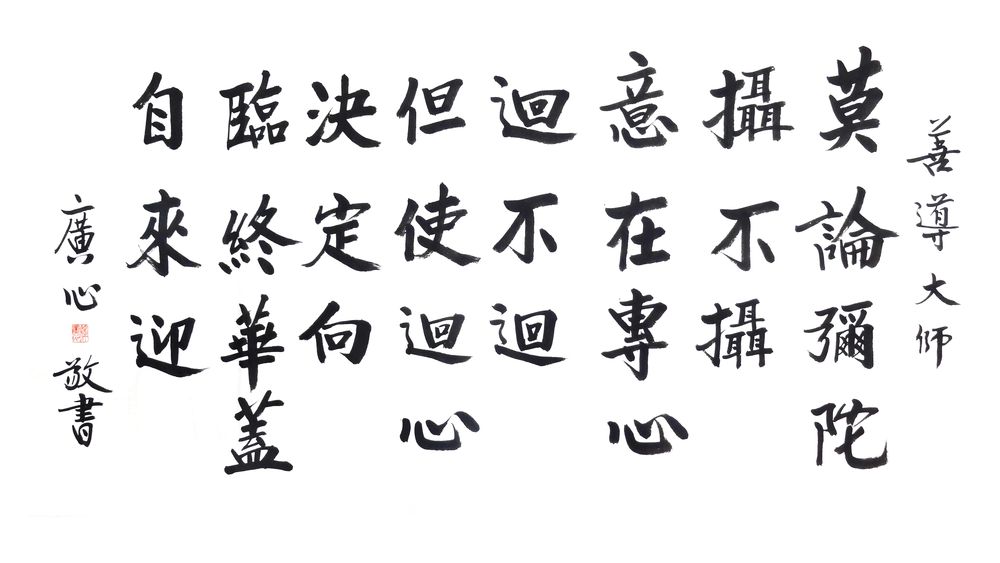 善導大師
莫論彌陀
攝不攝
意在專心
迴不迴
但使迴心
決定向
臨終華蓋
自來迎
廣心敬書